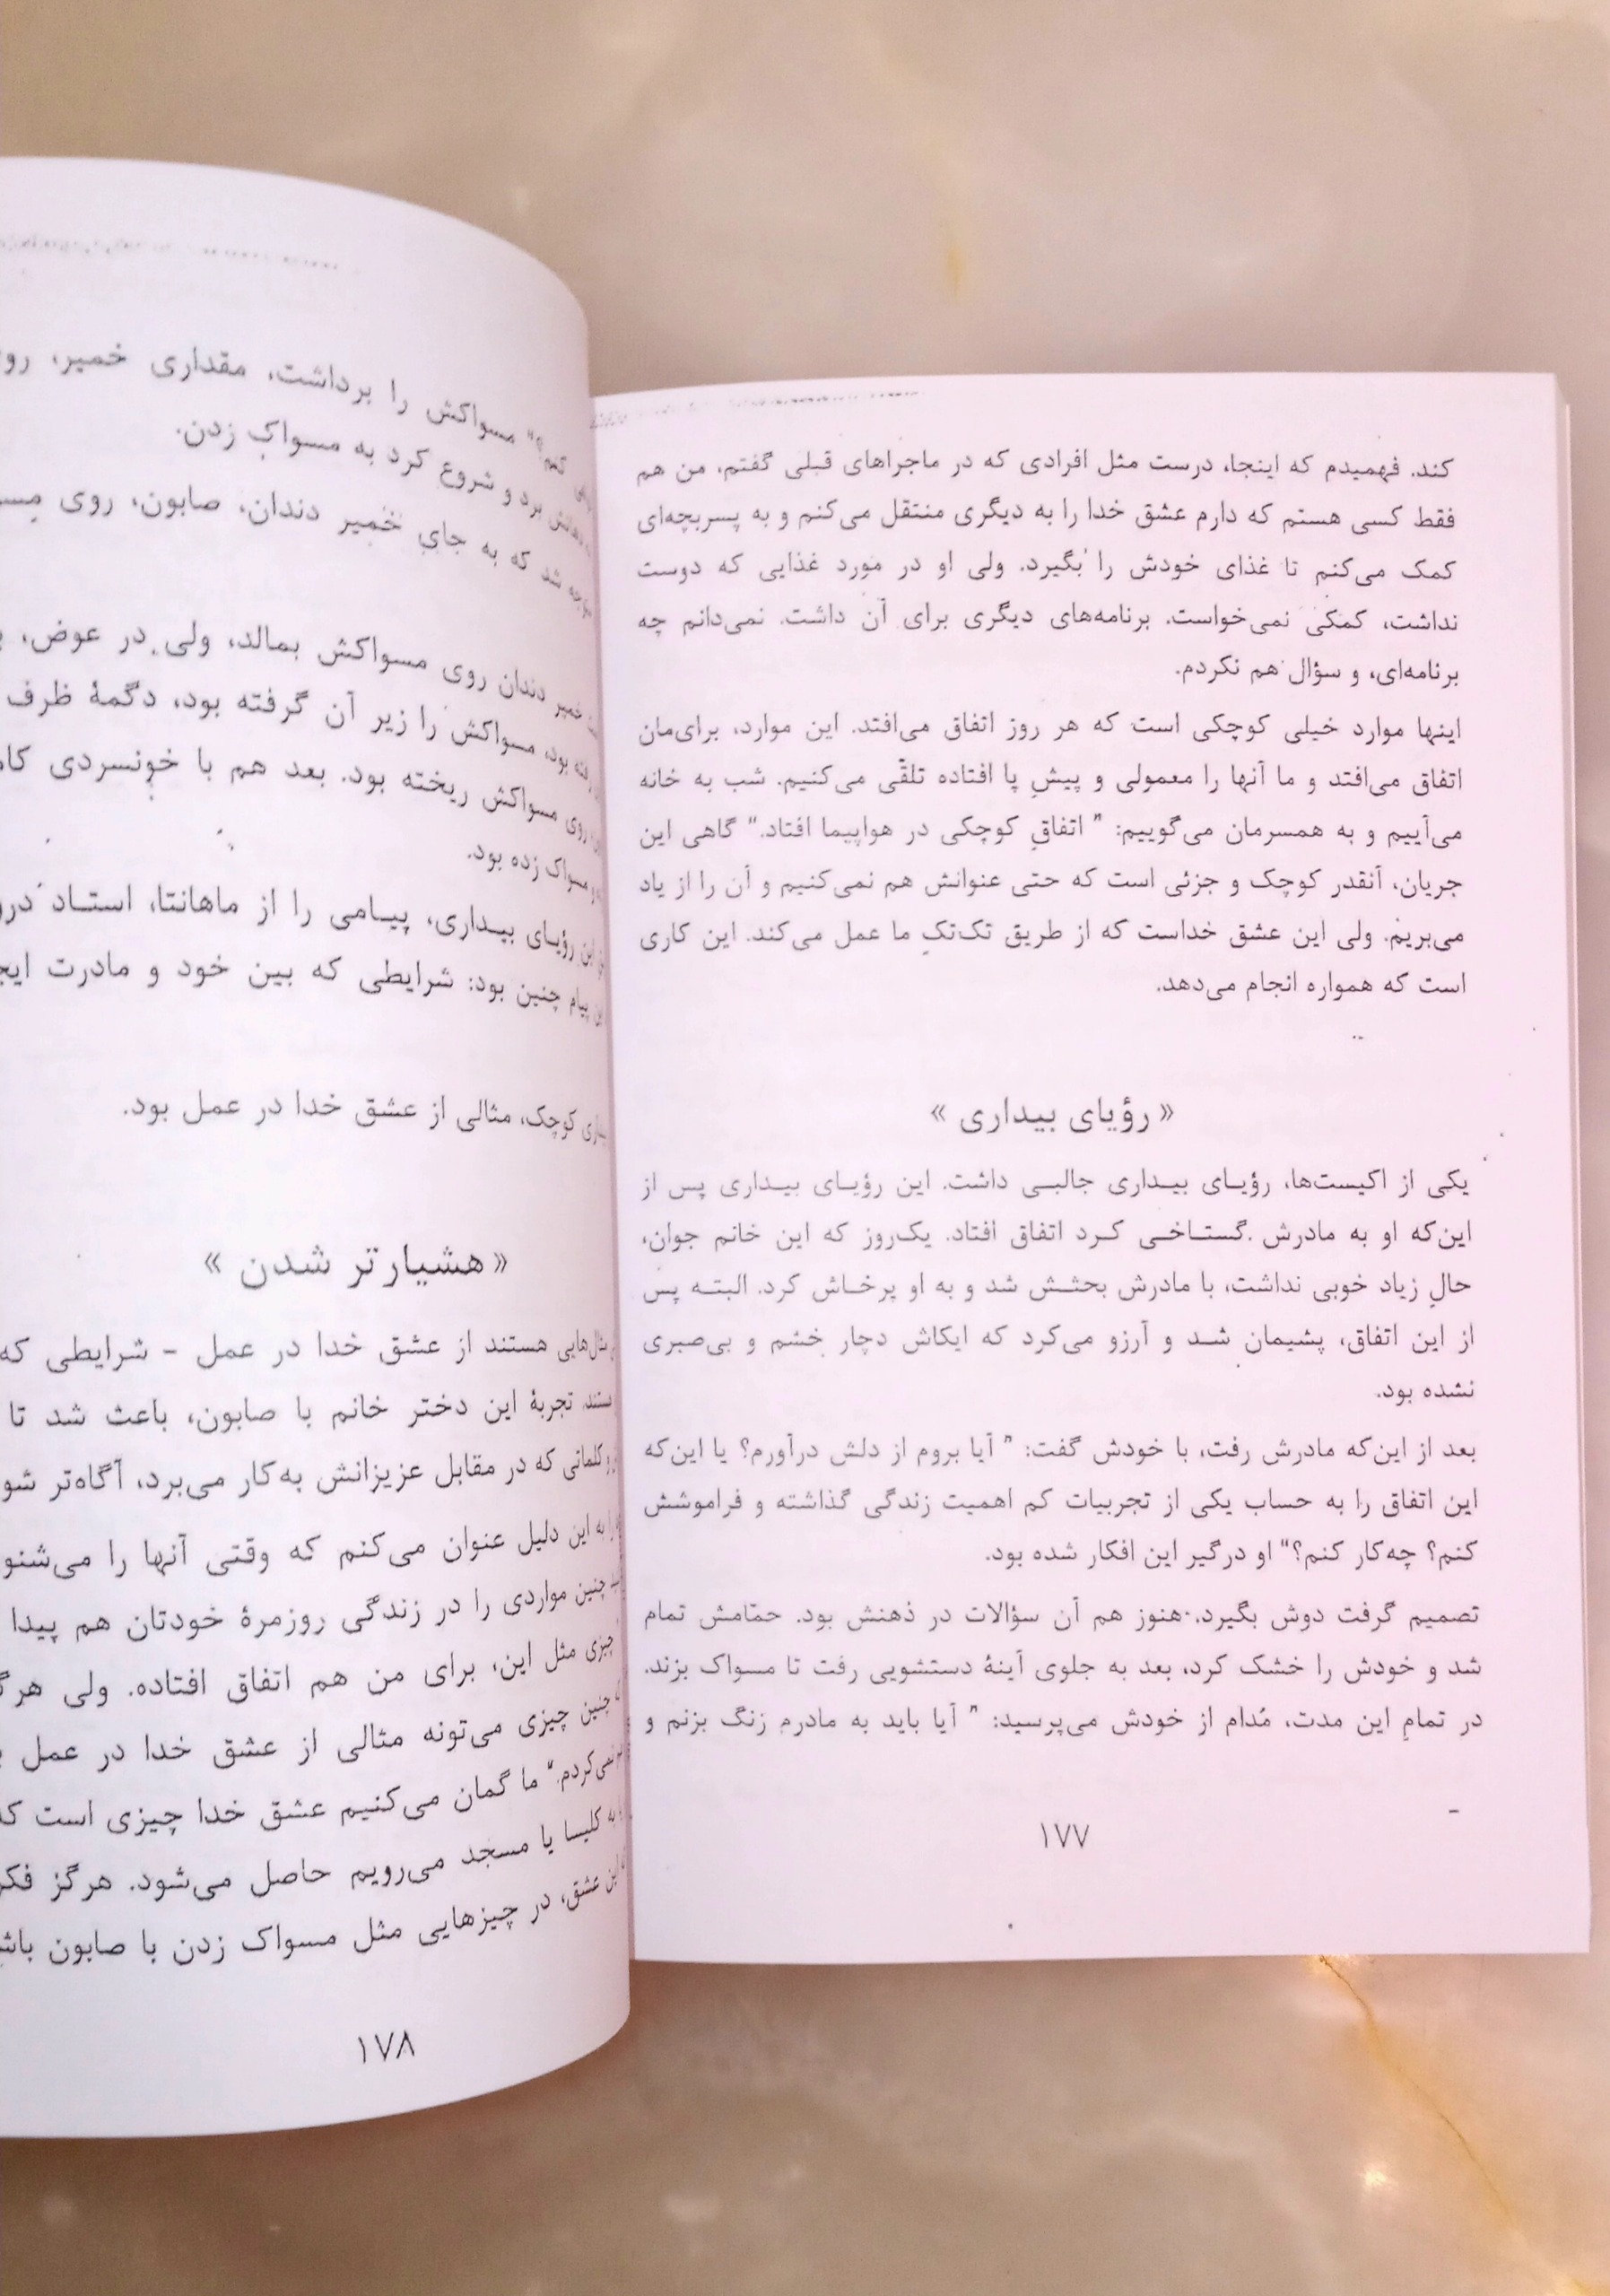 کند. فهمیدم که اینجا، درست مثل افرادی که در ماجراهای قبلی گفتم، من هم
فقط کسی هستم که دارم عشق خدا را به دیگری منتقل می‌کنم و به پسربچه‌ای
کمک می‌کنم تا غذای خودش را بگیرد. ولی او در مورد غذایی که دوست
نداشت، کمکی نمی‌خواست. برنامه‌های دیگری برای آن داشت. نمی‌دانم چه
برنامه‌ای، و سؤال هم نکردم.
اینها موارد خیلی کوچکی است که هر روز اتفاق می‌افتد. این موارد، برای‌مان
اتفاق می‌افتد و ما آنها را معمولی و پیشِ پا افتاده تلقّی می‌کنیم. شب به خانه
می‌آییم و به همسرمان می‌گوییم: " اتفاقِ کوچکی در هواپیما افتاد." گاهی این
جریان، آنقدر کوچک و جزئی است که حتی عنوانش هم نمی‌کنیم و آن را از یاد
می‌بریم. ولی این عشق خداست که از طریق تک‌تکِ ما عمل می‌کند. این کاری
است که همواره انجام می‌دهد.
« رؤیای بیداری »
یکی از اکیست‌ها، رؤیـای بیـداری جالبـی داشت. این رؤیـای بیـداری پس از
این‌که او به مادرش گستـاخـی کـرد اتفاق افتاد. یک‌روز که این خانم جوان،
حالِ زیاد خوبی نداشت، با مادرش بحثـش شد و به او پرخـاش کرد. البتـه پس
از این اتفاق، پشیمان شـد و آرزو می‌کرد که ایکاش دچار خشم و بی‌صبری
نشده بود.
بعد از این‌که مادرش رفت، با خودش گفت: " آیا بروم از دلش درآورم؟ یا این‌که
این اتفاق را به حساب یکی از تجربیات کم اهمیت زندگی گذاشته و فراموشش
کنم؟ چه‌کار کنم؟" او درگیر این افکار شده بود.
تصمیم گرفت دوش بگیرد. هنوز هم آن سؤالات در ذهنش بود. حمّامش تمام
شد و خودش را خشک کرد، بعد به جلوی آینهٔ دستشویی رفت تا مسواک بزند.
در تمامِ این مدت، مُدام از خودش می‌پرسید: " آیا باید به مادرم زنگ بزنم و
۱۷۷
کنم؟" مسواکش را برداشت، مقداری خمیر،
برد و شروع کرد به مسواک زدن.
شد که به جایِ خمیر دندان، صابون، روی
خمیر دندان روی مسواکش بمالد، ولی در عوض،
بود، مسواکش را زیر آن گرفته بود، دگمهٔ ظرف
روی مسواکش ریخته بود. بعد هم با خونسردی
مسواک زده بود.
این رؤیـای بیـداری، پیـامی را از ماهانتا، استـاد
پیام چنین بود: شرایطی که بین خود و مادرت
کوچک، مثالی از عشق خدا در عمل بود.
« هشیارتر شدن »
مثال‌هایی هستند از عشق خدا در عمل - شرایطی که
تجربهٔ این دختر خانم با صابون، باعث شد تا
کلماتی که در مقابل عزیزانش به‌کار می‌برد، آگاه‌تر
به این دلیل عنوان می‌کنم که وقتی آنها را
چنین مواردی را در زندگی روزمرهٔ خودتان هم پیدا
چیزی مثل این، برای من هم اتفاق افتاده. ولی
چنین چیزی می‌تونه مثالی از عشق خدا در عمل
نمی‌کردم." ما گمان می‌کنیم عشق خدا چیزی است
به کلیسا یا مسجد می‌رویم حاصل می‌شود. هرگز
این عشق، در چیزهایی مثل مسواک زدن با صابون
۱۷۸